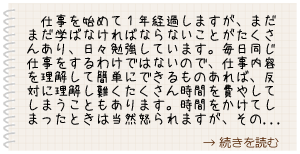 仕事を始めて１年経過しますが、まだ
まだ学ばなければならないことがたくさ
んあり、日々勉強しています。毎日同じ
仕事をするわけではないので、仕事内容
を理解して簡単にできるものあれば、反
対に理解し難くたくさん時間を費やして
しまうこともあります。時間をかけてし
まったときは当然怒られますが、その...
→ 続きを読む